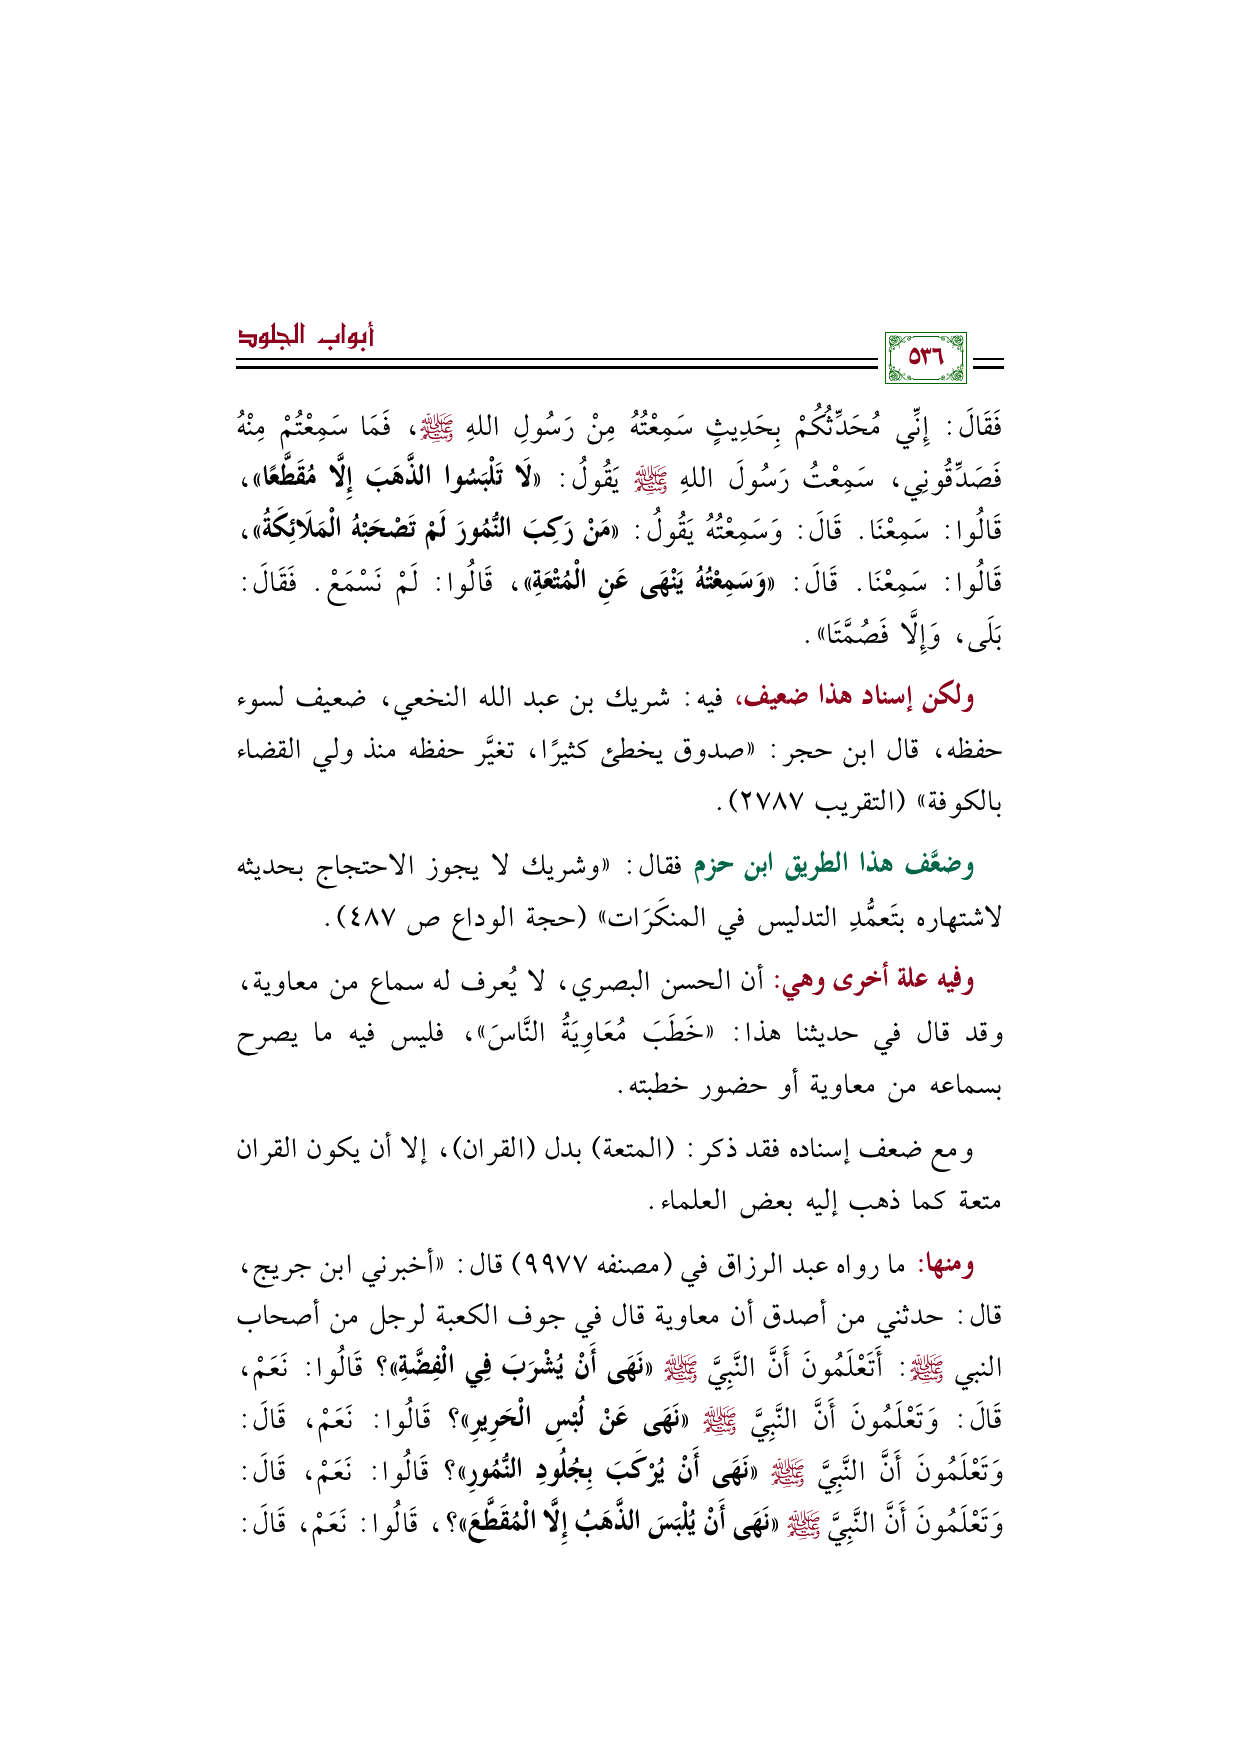 أبواب الجلود
٥٣٦
فَقَالَ: إِنِّي مُحَدِّثُكُمْ بِحَدِيثٍ سَمِعْتُهُ مِنْ رَسُولِ اللهِ ﷺ، فَمَا سَمِعْتُمْ مِنْهُ
فَصَدِّقُونِي، سَمِعْتُ رَسُولَ اللهِ ﷺ يَقُولُ: «لَا تَلْبَسُوا الذَّهَبَ إِلَّا مُقَطَّعًا»،
قَالُوا: سَمِعْنَا. قَالَ: وَسَمِعْتُهُ يَقُولُ: «مَنْ رَكِبَ النُّمُورَ لَمْ تَصْحَبْهُ الْمَلَائِكَةُ»،
قَالُوا: سَمِعْنَا. قَالَ: «وَسَمِعْتُهُ يَنْهَى عَنِ الْمُتْعَةِ»، قَالُوا: لَمْ نَسْمَعْ. فَقَالَ:
بَلَى، وَإِلَّا فَصُمَّتَا».
ولكن إسناد هذا ضعيف، فيه: شريك بن عبد الله النخعي، ضعيف لسوء
حفظه، قال ابن حجر: «صدوق يخطئ كثيرًا، تغيَّر حفظه منذ ولي القضاء
بالكوفة» (التقريب ٢٧٨٧).
وضعَّف هذا الطريق ابن حزم فقال: «وشريك لا يجوز الاحتجاج بحديثه
لاشتهاره بتَعمُّدِ التدليس في المنكَرَات» (حجة الوداع ص ٤٨٧).
وفيه علة أخرى وهي: أن الحسن البصري، لا يُعرف له سماع من معاوية،
وقد قال في حديثنا هذا: «خَطَبَ مُعَاوِيَةُ النَّاسَ»، فليس فيه ما يصرح
بسماعه من معاوية أو حضور خطبته.
ومع ضعف إسناده فقد ذكر: (المتعة) بدل (القران)، إلا أن يكون القران
متعة كما ذهب إليه بعض العلماء.
ومنها: ما رواه عبد الرزاق في (مصنفه ٩٩٧٧) قال: «أخبرني ابن جريج،
قال: حدثني من أصدق أن معاوية قال في جوف الكعبة لرجل من أصحاب
النبي ﷺ: أَتَعْلَمُونَ أَنَّ النَّبِيَّ ﷺ «نَهَى أَنْ يُشْرَبَ فِي الْفِضَّةِ»؟ قَالُوا: نَعَمْ،
قَالَ: وَتَعْلَمُونَ أَنَّ النَّبِيَّ ﷺ «نَهَى عَنْ لُبْسِ الْحَرِيرِ»؟ قَالُوا: نَعَمْ، قَالَ:
وَتَعْلَمُونَ أَنَّ النَّبِيَّ ﷺ «نَهَى أَنْ يُرْكَبَ بِجُلُودِ النُّمُورِ»؟ قَالُوا: نَعَمْ، قَالَ:
وَتَعْلَمُونَ أَنَّ النَّبِيَّ ﷺ «نَهَى أَنْ يُلْبَسَ الذَّهَبُ إِلَّا الْمُقَطَّعَ»؟، قَالُوا: نَعَمْ، قَالَ: